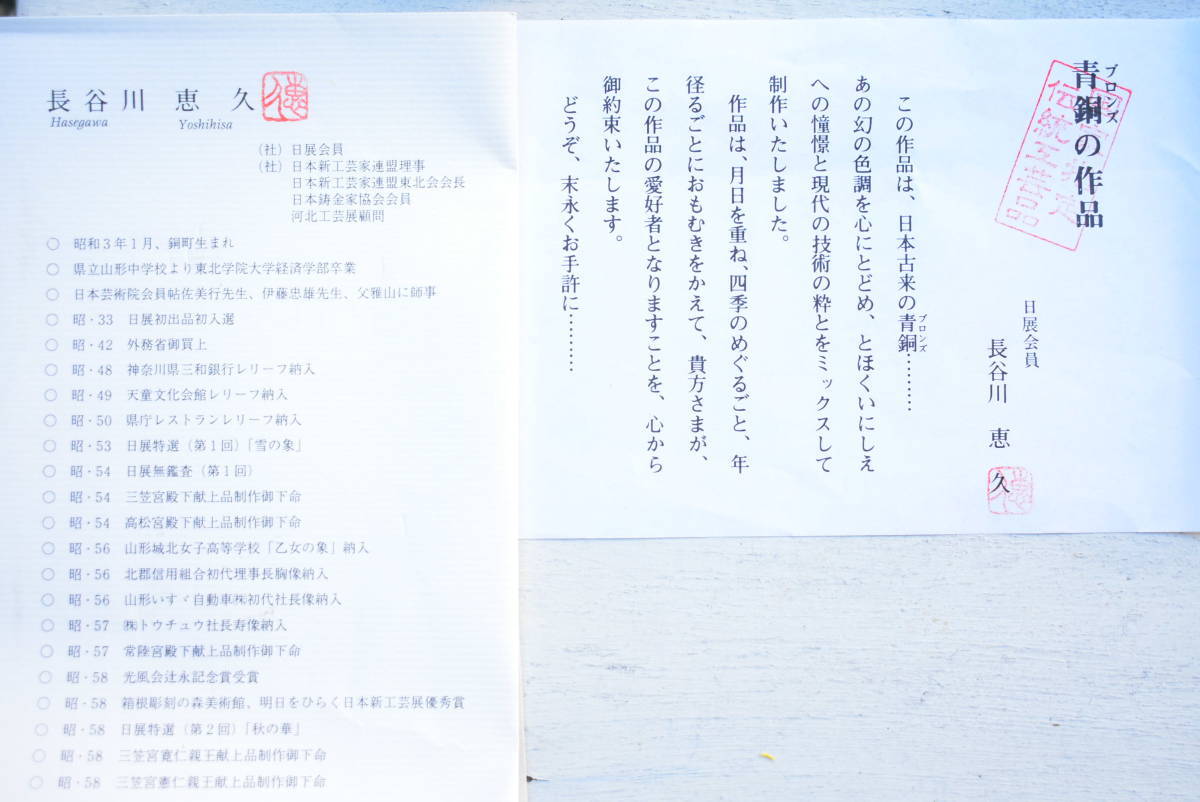 長谷川 恵久
Hasegawa Yoshihisa
（社）日展会員
（社）日本新工芸家連盟理事
日本新工芸家連盟東北会会長
日本鋳金家協会会員
河北工芸展顧問
○ 昭和３年１月、銅町生まれ
○ 県立山形中学校より東北学院大学経済学部卒業
○ 日本芸術院会員帖佐美行先生、伊藤忠雄先生、父雅山に師事
○ 昭・33 日展初出品初入選
○ 昭・42 外務省御買上
○ 昭・48 神奈川県三和銀行レリーフ納入
○ 昭・49 天童文化会館レリーフ納入
○ 昭・50 県庁レストランレリーフ納入
○ 昭・53 日展特選（第１回）「雪の象」
○ 昭・54 日展無鑑査（第１回）
○ 昭・54 三笠宮殿下献上品制作御下命
○ 昭・54 高松宮殿下献上品制作御下命
○ 昭・56 山形城北女子高等学校「乙女の象」納入
○ 昭・56 北郡信用組合初代理事長胸像納入
○ 昭・56 山形いすゞ自動車㈱初代社長像納入
○ 昭・57 ㈱トウチュウ社長寿像納入
○ 昭・57 常陸宮殿下献上品制作御下命
○ 昭・58 光風会辻永記念賞受賞
○ 昭・58 箱根彫刻の森美術館、明日をひらく日本新工芸展優秀賞
○ 昭・58 日展特選（第２回）「秋の華」
○ 昭・58 三笠宮寛仁親王献上品制作御下命
○ 昭・58 三笠宮憲仁親王献上品制作御下命
青銅の作品
ブロンズ
伝統工芸品
日展会員
長谷川 恵久
この作品は、日本古来の青銅………
ブロンズ
あの幻の色調を心にとどめ、とほくいにしえ
への憧憬と現代の技術の粋とをミックスして
制作いたしました。
作品は、月日を重ね、四季のめぐるごと、年
径るごとにおもむきをかえて、貴方さまが、
この作品の愛好者となりますことを、心から
御約束いたします。
どうぞ、末永くお手許に………